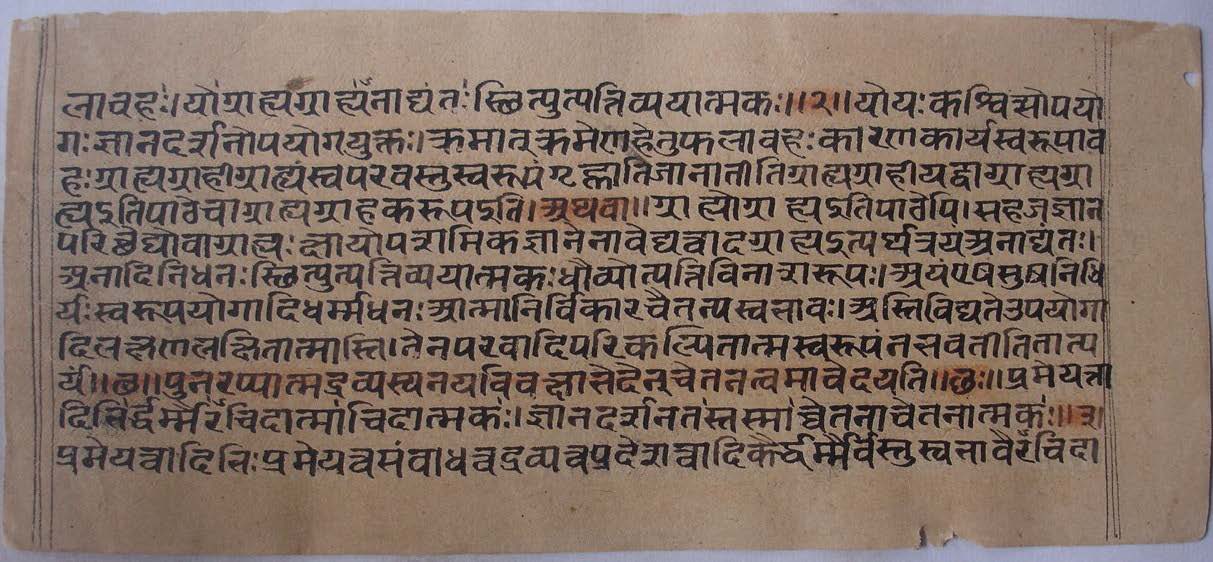 लावहः। यो ग्राह्यग्राह्यनाद्यंतः स्थित्पुत्पत्तिव्ययात्मकः॥२॥ यो यः कश्चित्सोपयो
गः ज्ञानदर्शनोपयोगयुक्तः। क्रमात् क्रमेण हेतुफलावहः कारणकार्यस्वरूपाव
हः ग्राह्यग्राही ग्राह्यं स्वपरवस्तुस्वरूपं गृह्णाति जानातीति ग्राह्यग्राही यद्वा ग्राह्यग्रा
ह्यऽति पाठे चाग्राह्यग्राहकरूपऽति। अथवा॥ ग्राह्योग्राह्यऽति पाठेपि। सहजज्ञान
परिछेद्यो वा ग्राह्यः क्षायोपशमिकज्ञानेनावेद्यत्वादग्राह्यऽत्यर्थ अनाद्यंतः।
अनादिनिधनः स्थित्पुत्पत्तिव्ययात्मकः ध्रौव्योत्पत्तिविनाशरूपः। अयं एष
र्यः स्वरूपयोगादिधर्म्मधनः आत्मा निर्विकारचैतन्यस्वभावः। अस्ति विद्यते उपयोगा
दिलक्षणेलक्षितात्मास्ति। तेन परवादिपरिकल्पितात्मस्वरूपं न भवतीति तात्प
र्यं॥छ॥ पुनरप्यात्मद्रव्यस्य नयविवक्षाभेदेन् चेतनत्वमावेदयति॥छः॥ प्रमेयत्वा
दिभिर्द्धर्म्मैरचिदात्मा चिदात्मकः। ज्ञानदर्शनतस्तस्माच्चेतनाचेतनात्मकः॥३।
प्रमेयत्वादिभिः प्रमेयत्व द्रव्यत्वप्रदेशत्वादिकैर्द्धर्म्मैर्वस्तुस्वभावैरचिदा